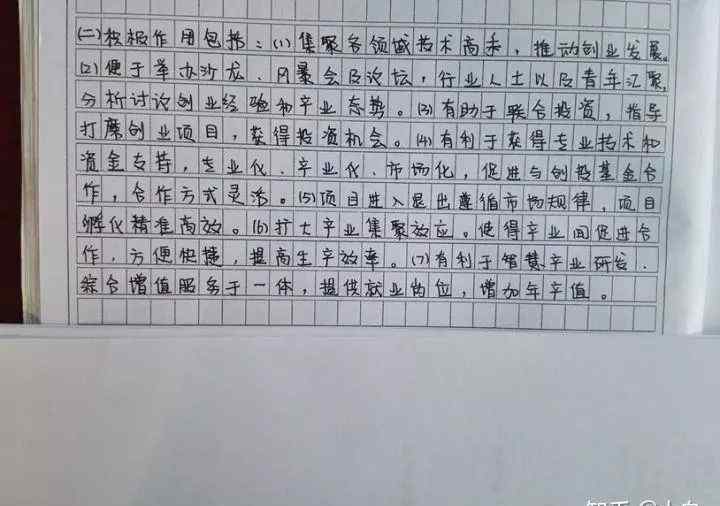 (二)积极作用包括：(1)集聚多领域技术高手，推动创业发展。
(2)便于举办沙龙、风景会及论坛，行业人士以及青年汇聚，
分析讨论创业经验和产业态势。(3)有助于联合投资，指导
打磨创业项目，获得投资机会。(4)有利于获得专业技术和
资金支持，专业化、产业化、市场化，促进与创投基金合
作，合作方式灵活。(5)项目进入退出遵循市场规律，项目
孵化精准高效。(6)扩大产业集聚效应。使得产业间促进合
作，方便快捷，提高生产效率。(7)有利于智慧产业研发、
综合增值服务于一体，提供就业岗位，增加年产值。
知乎 @小白